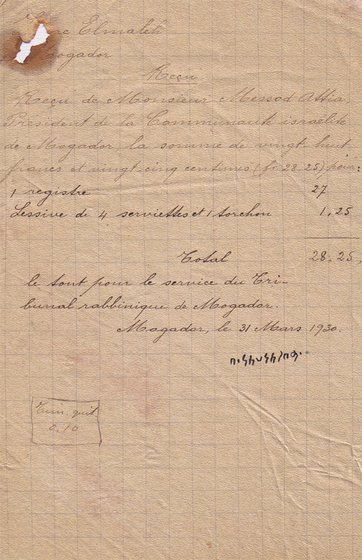 Elmaleh
Mogador
Reçu
Reçu de Monsieur Messod Attia
Président de la Communauté israélite
de Mogador, la somme de vingt huit
francs et vingt cinq centimes (Fr 28.25) pour:
1 registre 27
Lessive de 4 serviettes et 1 torchon 1,25
Total 28.25,
le tout pour le service du Tri-
bunal rabbinique de Mogador.
Mogador, le 31 Mars 1930.
Tim. quit
0.10